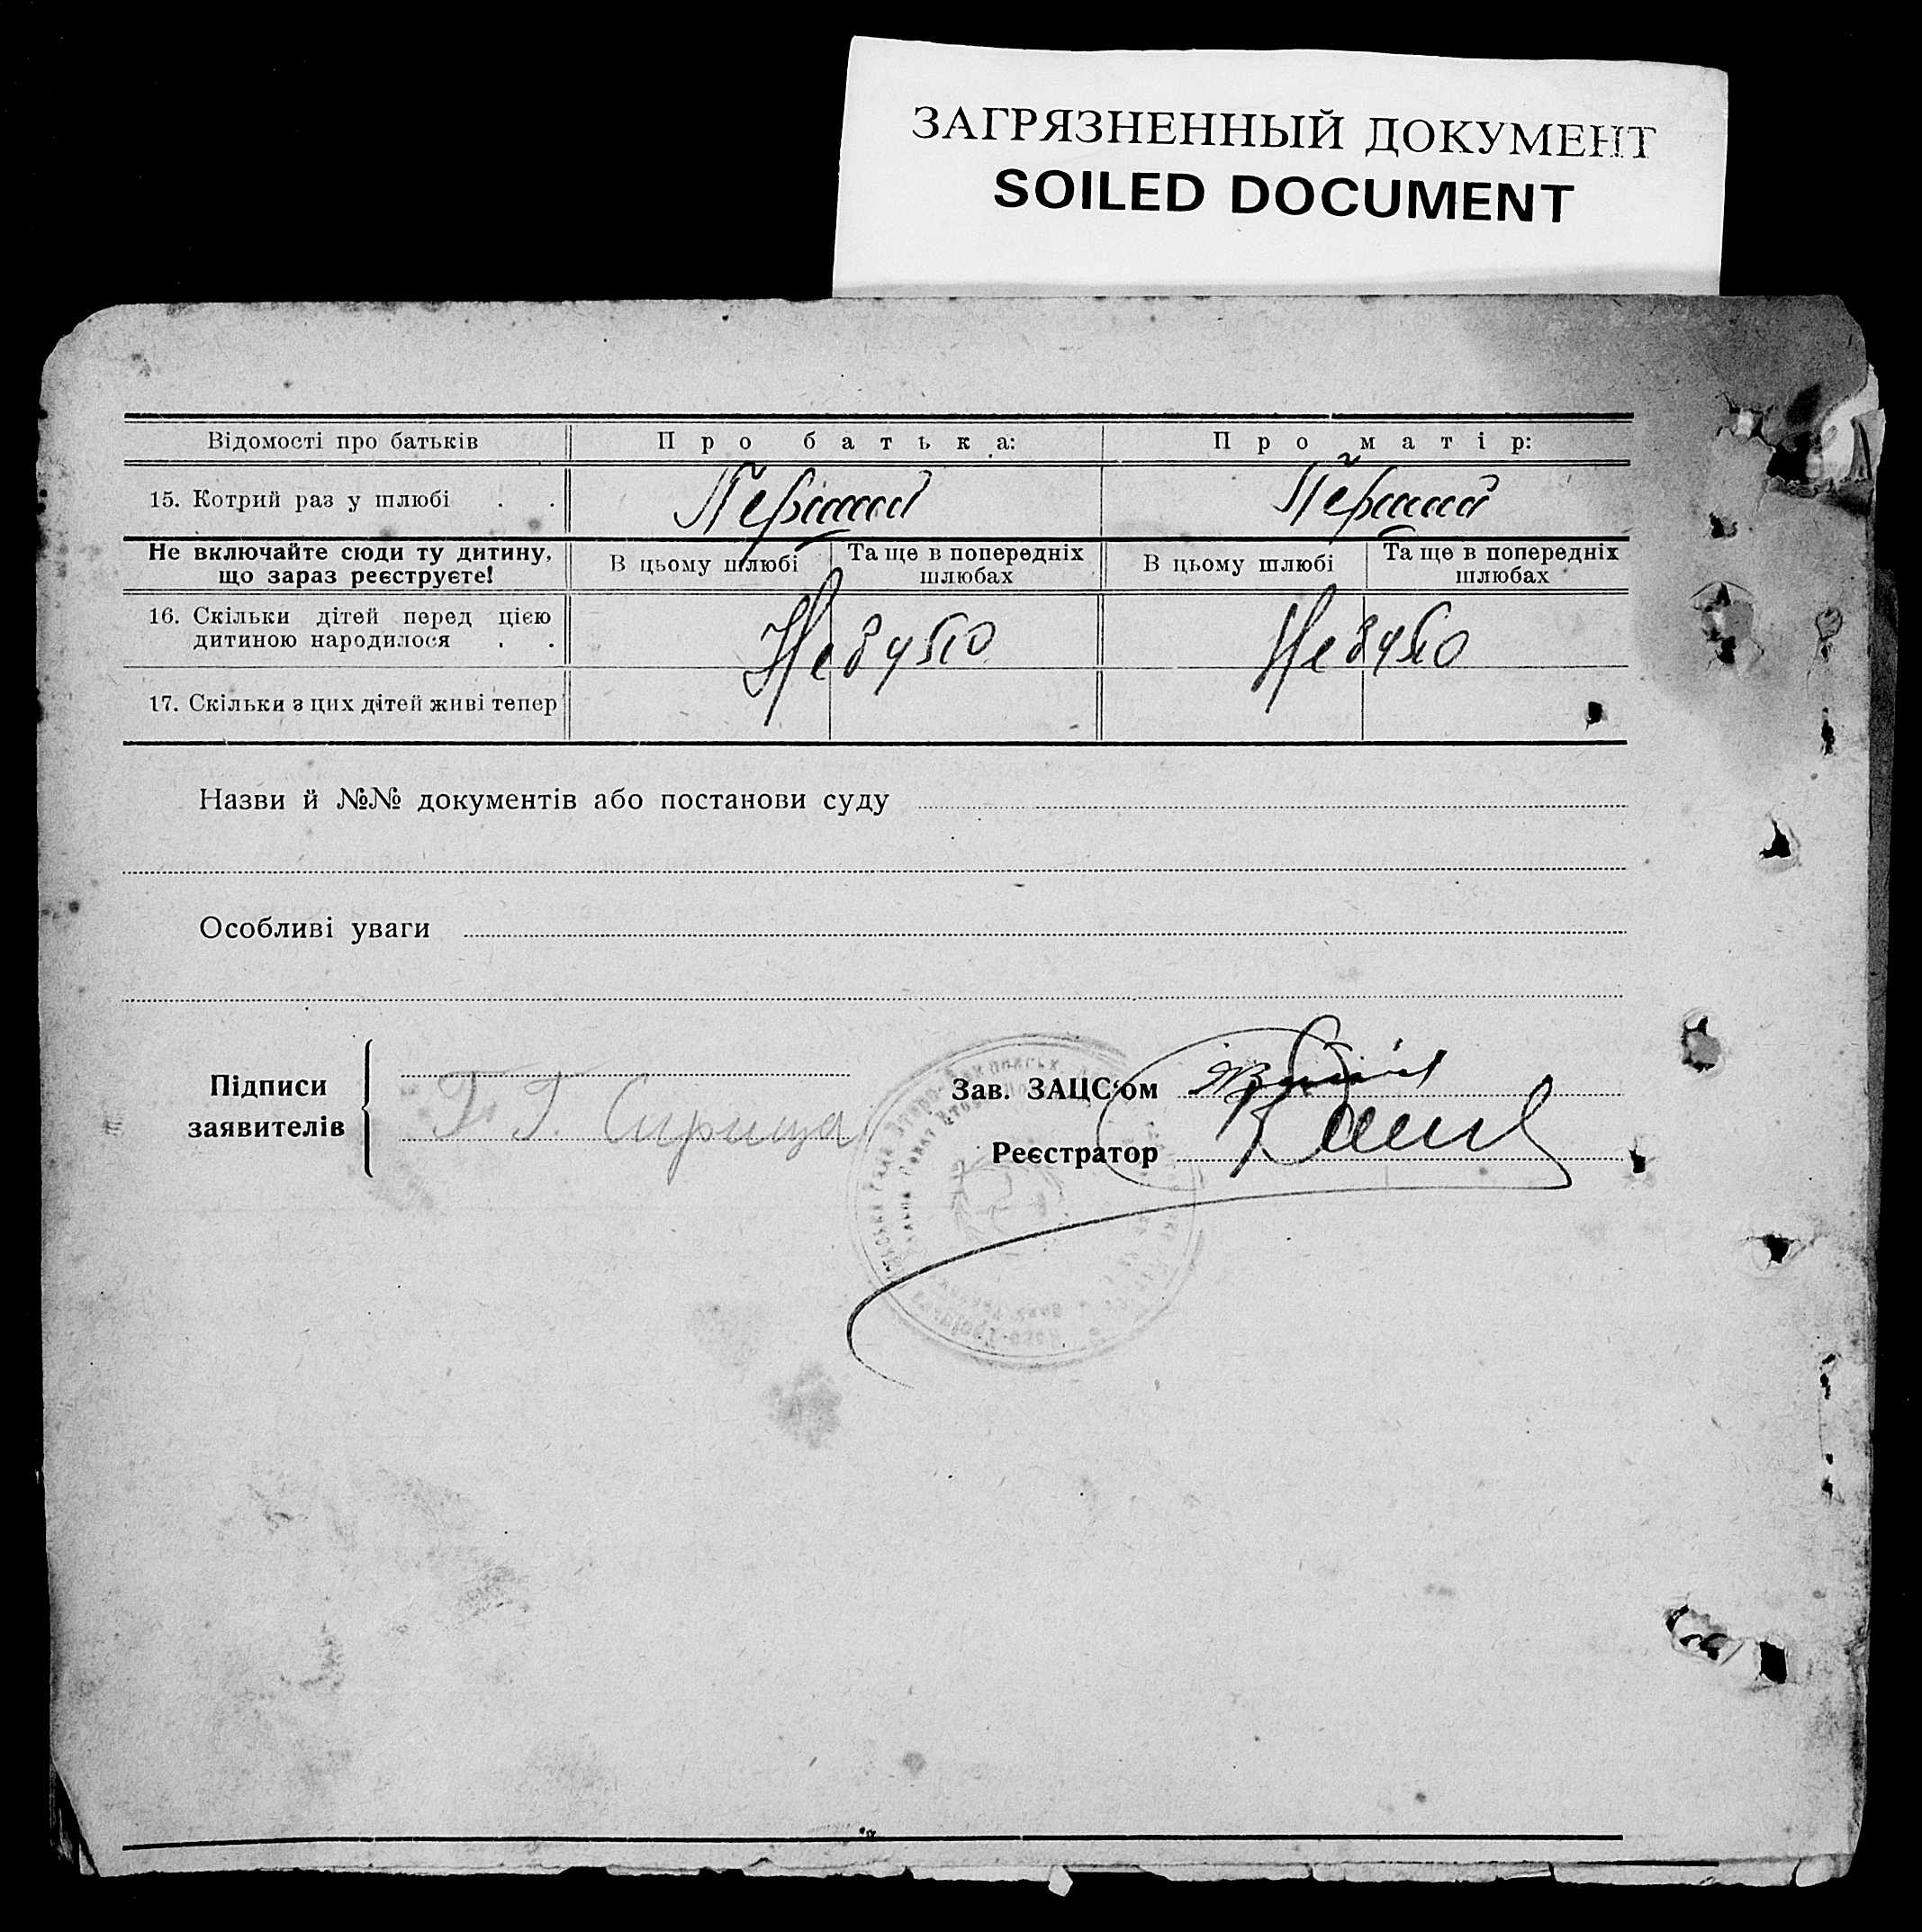 ЗАГРЯЗНЕННЫЙ ДОКУМЕНТ
SOILED DOCUMENT
Відомості про батьків Про батька: Про матір:
15. Котрий раз у шлюбі . . Перший Перший
Не включайте сюди ту дитину, що зараз реєструєте! В цьому шлюбі Та ще в попередніх шлюбах В цьому шлюбі Та ще в попередніх шлюбах
16. Скільки дітей перед цією
дитиною народилося . . Не було Не було
17. Скільки з цих дітей живі тепер
Назви й №№ документів або постанови суду
Особливі уваги
Підписи
заявителів
Г. Г. Сирица
Зав. ЗАЦС'ом
Реєстратор